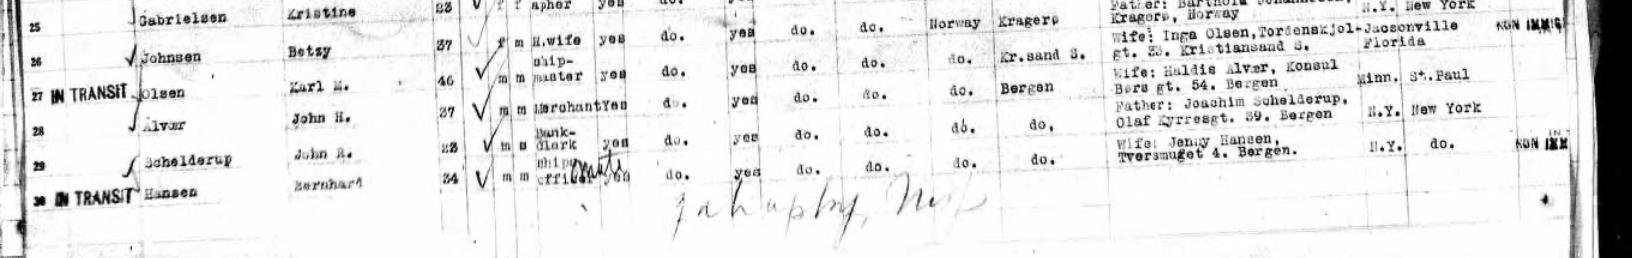 25 Gabrielsen Kristine 23 f f apher yes do. yes do. do. Norway Kragerø Kragerø, Norway N.Y. New York
26 Johnsen Betzy 37 f m H.wife yes do. yes do. do. do. Kr.sand S. Wife: Inga Olsen, Tordenskjol- Jacsonville NON IMMIG
ship- gt. 23. Kristiansand S. Florida
27 IN TRANSIT Olsen Karl M. 46 m m master yes do. yes do. do. do. Bergen Wife: Haldis Alvær, Konsul Minn. St.Paul
Børs gt. 54. Bergen
28 Alvær John H. 37 m m Merchant Yes do. yes do. do. do. do. Father: Joachim Schelderup, N.Y. New York
Bank- Olaf Kyrresgt. 39. Bergen
29 Schelderup John R. 23 m s clerk yes do. yes do. do. do. do. Wife: Jenny Hansen, N.Y. do. NON IMM
ships Tversmuget 4. Bergen.
30 IN TRANSIT Hansen Bernhard 34 m m officer yes do. yes do. do.